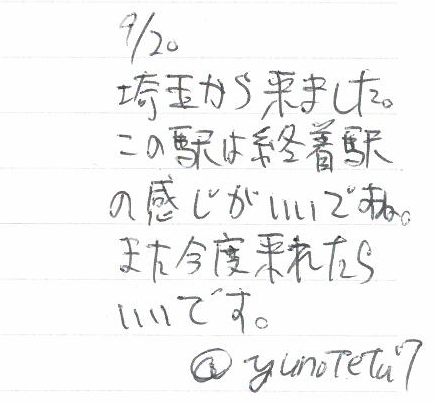 9/20
埼玉から来ました。
この駅は終着駅
の感じがいいですね。
また今度来れたら
いいです。
@yunoTeTu7